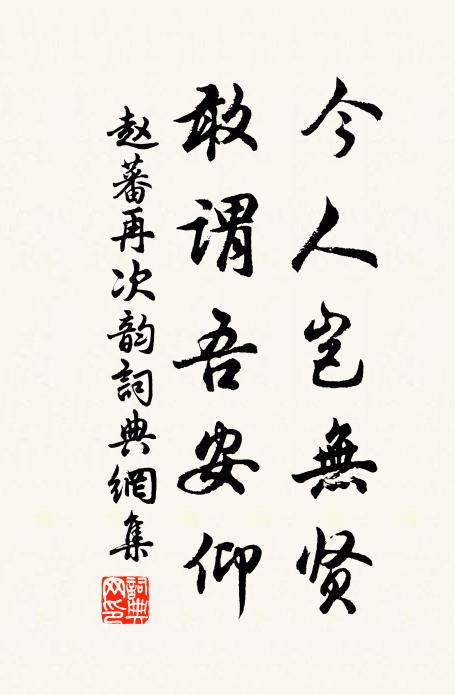 今人岂無贤
敢谓吾安仰
赵蕃再次韵詞典網集
詞典网印